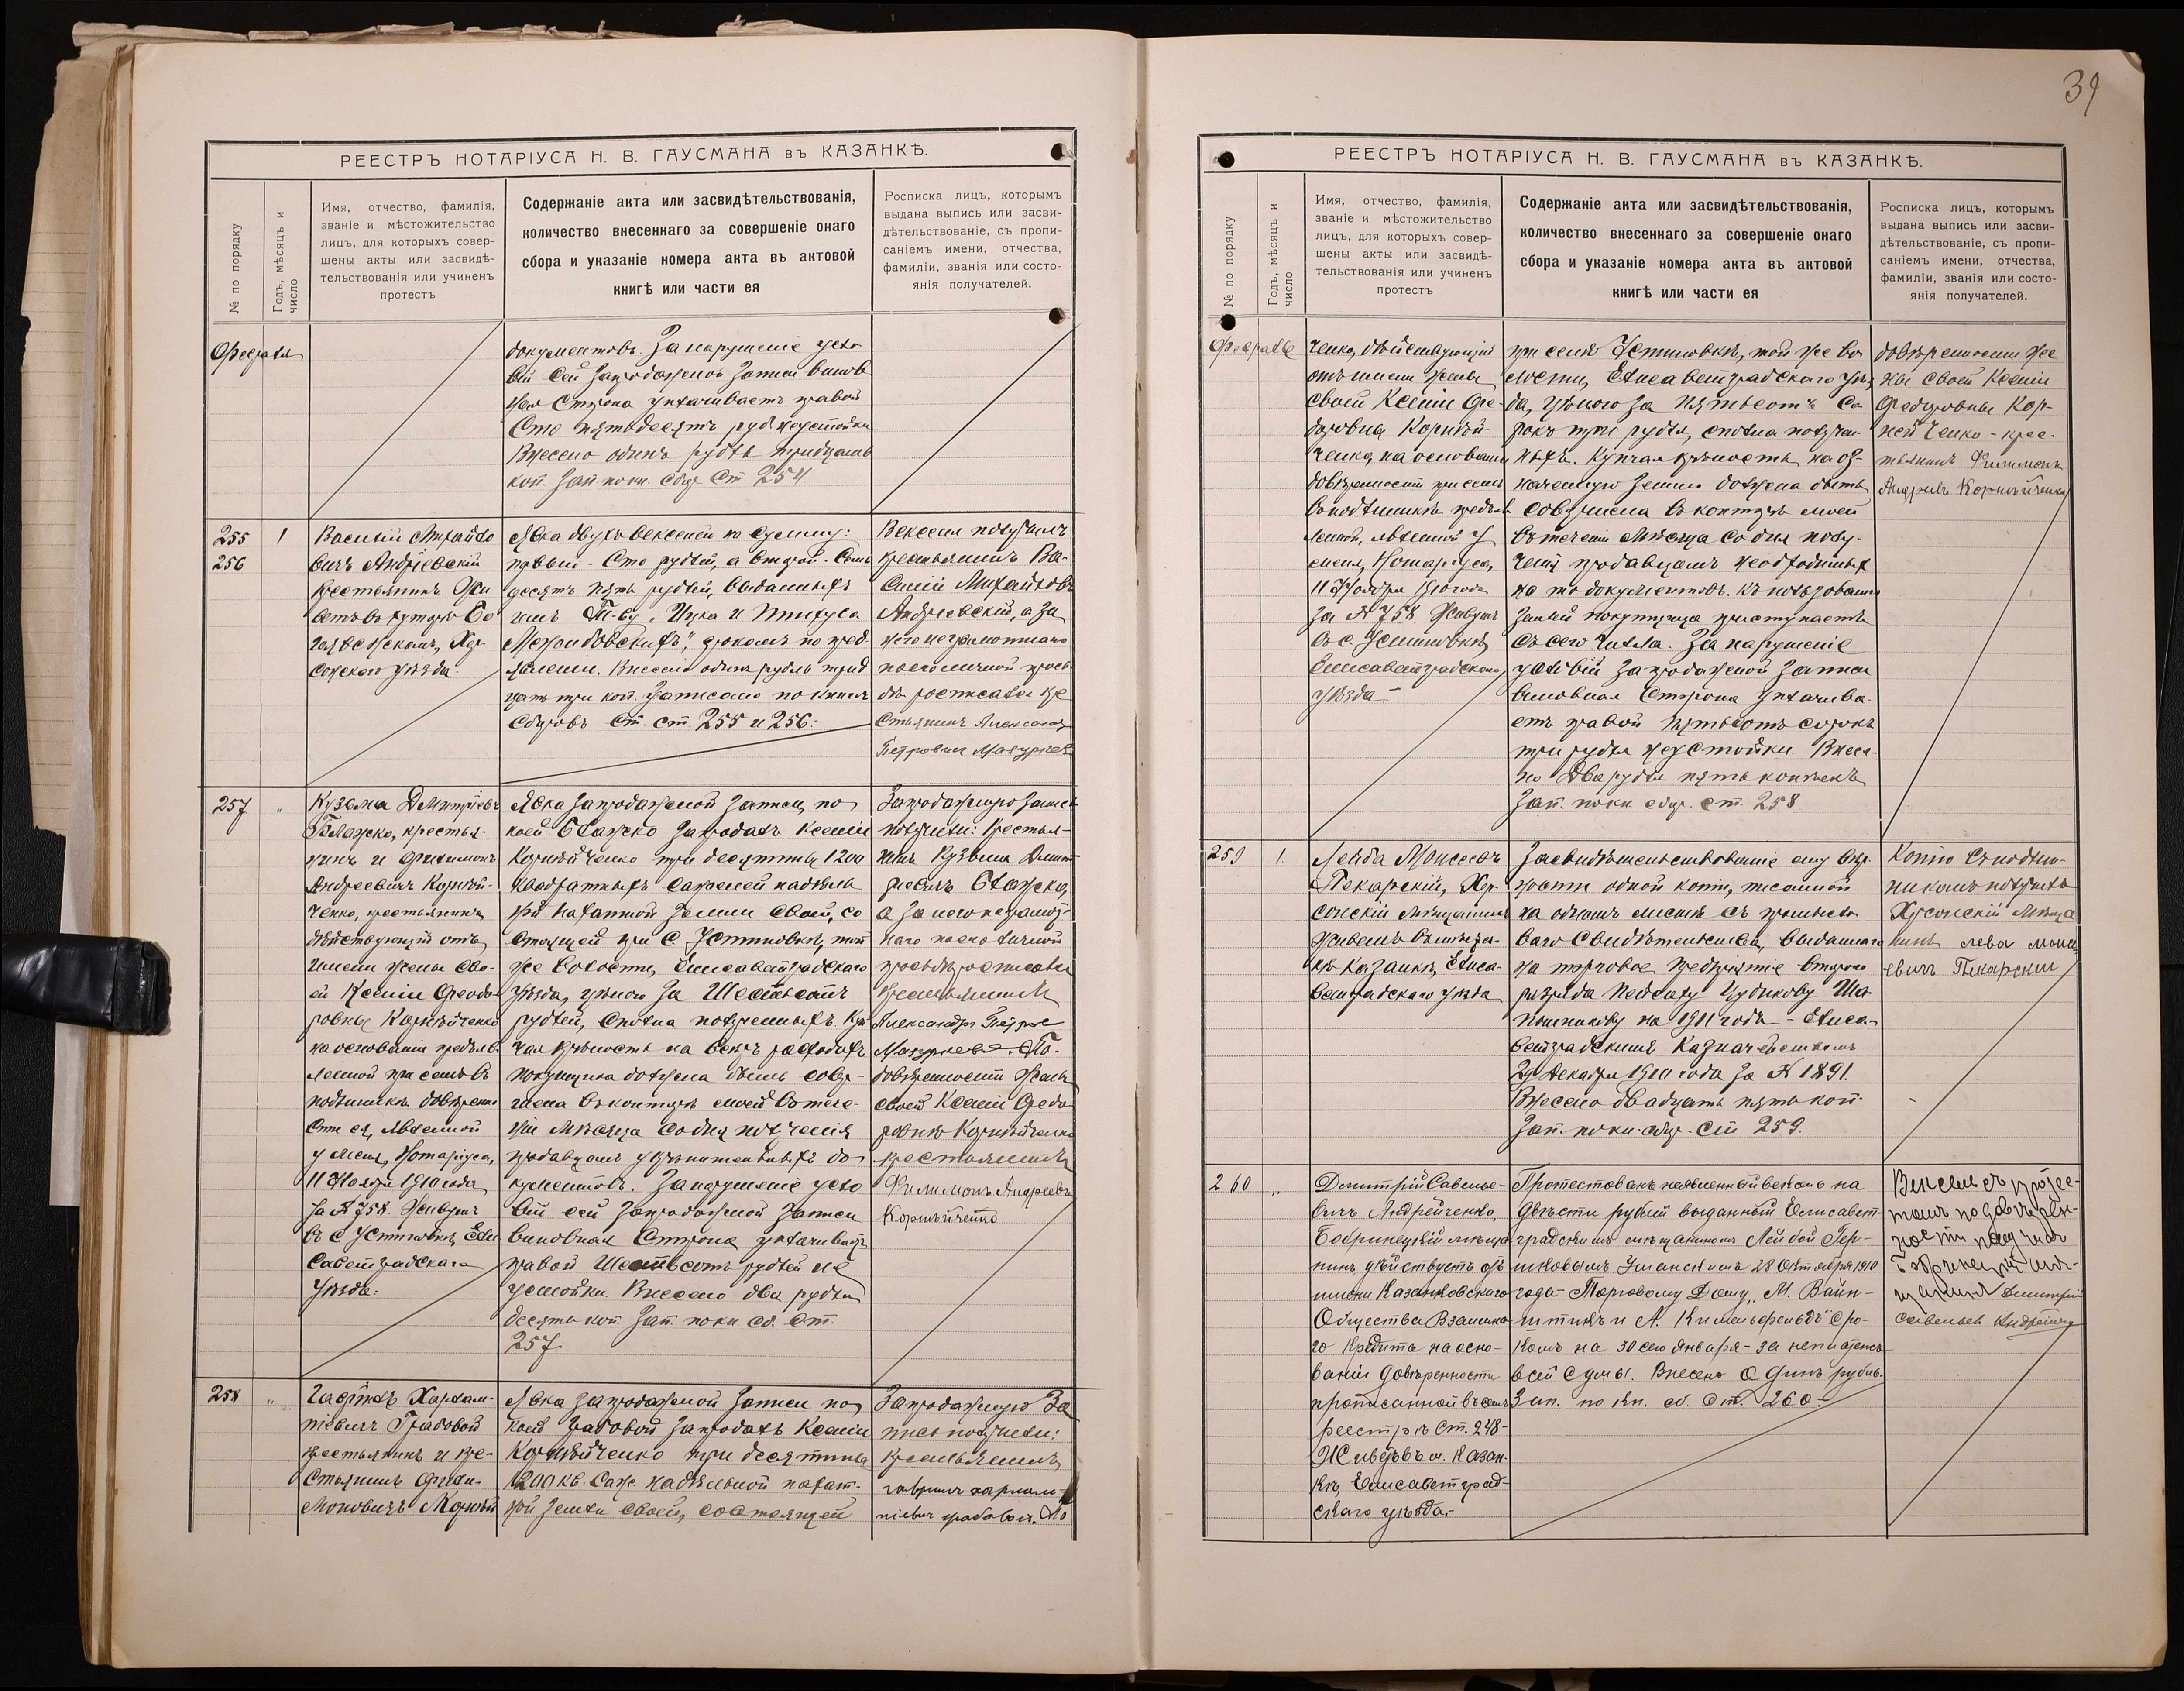 РЕЕСТРЪ НОТАРІУСА Н. В. ГАУСМАНА въ КАЗАНКѢ.
№ по порядку
Годъ, мѣсяцъ и
число
Имя, отчество, фамилія,
званіе и мѣстожительство
лицъ, для которыхъ совер-
шены акты или засвидѣ-
тельствованія или учиненъ
протестъ
Содержаніе акта или засвидѣтельствованія,
количество внесеннаго за совершеніе онаго
сбора и указаніе номера акта въ актовой
книгѣ или части ея
Росписка лицъ, которымъ
выдана выпись или засви-
дѣтельствованіе, съ пропи-
саніемъ имени, отчества,
фамиліи, званія или состо-
янія получателей.
Февраля
документовъ. За нарушеніе усло
вій сей запродажной записи винов
ная Сторона уплачиваетъ правой
Сто пятьдесятъ руб. неустойки
Внесено одинъ рубль тридцать
коп. Зап. по кн. сбор. Ст 254
255
256
1
Василій Михайло
вичъ Андріевскій
крестьянинъ Жи
ветъ въ хуторѣ
Хер
сонскаго уѣзда.
Явка двухъ векселей на сумму:
первый - Сто рублей, а второй - Семь
десятъ пять рублей, выданныхъ
имъ Т-ву „Ицка и Пинхуса
срокомъ по пред
явленіи. Внесено одинъ рубль трид
цать три коп. Записано по книгѣ
Сборовъ Ст. ст. 255 и 256.
Векселя получилъ
крестьянинъ Ва-
силій Михайловъ
Андріевскій, а за
него неграмотнаго
по его личной прось
бѣ росписался кре
стьянинъ Александр
Петровичъ
257
"
Кузьма Дмитріевъ
Блажко, крестья-
нинъ и Филимонъ
Андреевичъ Корній-
ченко, крестьянинъ
дѣйствующій отъ
имени жены сво-
ей Ксеніи Феодо
ровны Корнѣйченко
на основаніи предъяв-
ленной при семъ въ
подлинникѣ довѣрен-
ности ея, явленной
у меня, Нотаріуса,
11 Ноября 1910 года
за № 758. Живутъ
въ с. Устиновкѣ, Ели
саветградскаго
Уѣзда.
Явка запродажной записи, по
коей Блажко запродалъ Ксеніи
Корнѣйченко три десятины 1200
квадратныхъ саженей надѣль
ной пахатной земли своей, со
стоящей при с. Устиновкѣ, той
же волости, Елисаветградскаго
Уѣзда, цѣною за Шестьсотъ
рублей, сполна полученныхъ. Куп
чая крѣпость на
покупщика должна быть совер-
шена въ конторѣ моей въ тече-
ніи мѣсяца со дня полученія
продавцомъ укрѣпительныхъ до
кументовъ. За нарушеніе усло
вій сей запродажной записи
виновная Сторона уплачиваетъ
правой Шестьсотъ рублей не
устойки. Внесено два рубля
десять коп. Зап. по кн. сб. Ст
257.
Запродажную запись
получили: Крестья-
нинъ Кузьма Дмит-
ріевичъ Блажко,
а за него неграмот-
наго по его личной
просьбѣ росписался
крестьянинъ
Александръ Петров
По
довѣренности жены
своей Ксеніи Федо
ровны Корнѣйченко
крестьянинъ
Филимонъ Андреевъ
Корнѣйченко
258
"
Гаврілъ Харлам-
піевичъ Грабовой
крестьянинъ и кре-
стьянинъ Фили-
моновичъ Корнѣй
Явка запродажной записи по
коей Грабовой запродалъ Ксеніи
Корнѣйченко три десятины
1200 кв. саж. надѣльной пахат-
ной земли своей, состоящей
Запродажную За
пись получили:
Крестьянинъ
гаврилъ харлам-
піевич грабовой. По
39
РЕЕСТРЪ НОТАРІУСА Н. В. ГАУСМАНА въ КАЗАНКѢ.
№ по порядку
Годъ, мѣсяцъ и
число
Имя, отчество, фамилія,
званіе и мѣстожительство
лицъ, для которыхъ совер-
шены акты или засвидѣ-
тельствованія или учиненъ
протестъ
Содержаніе акта или засвидѣтельствованія,
количество внесеннаго за совершеніе онаго
сбора и указаніе номера акта въ актовой
книгѣ или части ея
Росписка лицъ, которымъ
выдана выпись или засви-
дѣтельствованіе, съ пропи-
саніемъ имени, отчества,
фамиліи, званія или состо-
янія получателей.
Февраля
ченко, дѣйствующій
отъ имени жены
своей Ксеніи Фе-
доровны Корнѣй-
ченко, на основаніи
довѣренности при семъ
въ подлинникѣ предъяв
ленной, явленной у
меня, Нотаріуса,
11 Ноября 1910 года
за № 758. Живутъ
въ с. Устиновкѣ,
Елисаветградскаго
уѣзда -
при селѣ Устиновкѣ, той же во
лости, Елисаветградскаго уѣз
да, цѣною за пятьсотъ со
рокъ три рубля, сполна получен
ныхъ. Купчая крѣпость на оз-
наченную землю должна быть
совершена въ конторѣ моей
въ теченіи мѣсяца со дня полу-
ченія продавцомъ необходимых
на то документовъ. Къ пользованію
землей покупщица приступаетъ
съ сего числа. За нарушеніе
условій запродажной записи
виновная Сторона уплачива-
етъ правой пятьсотъ сорокъ
три рубля неустойки. Внесе-
но Два рубля пять копѣекъ
Зап. по кн сбор. ст. 258
довѣренности же
ны своей Ксеніи
Федоровны Кор-
нѣйченко - крес-
тьянинъ Филимонъ
Андреевъ Корнѣйченко
259
1.
Лейба Моисеевъ
Пекарскій, Хер-
сонскій мѣщанинъ
Живетъ въ мѣстеч-
кѣ Казанкѣ, Елиса-
ветградскаго уѣзда
Засвидѣтельствованіе ему вѣр-
ности одной копіи, писанной
на одномъ листѣ съ промысло
ваго Свидѣтельства, выданнаго
на торговое предпріятіе второго
разряда Пейсаху Іудкову Ша-
на 1911 годъ - Елиса-
ветградскимъ Казначействомъ
29 Декабря 1910 года за № 1891.
Внесено двадцать пять коп.
Зап. по кн. сбор. Ст 259.
Копію съ подлин-
никомъ получилъ
Херсонскій мѣща
нинъ лева моис
евичъ Пекарски
260
"
Дмитрій Савелье-
вичъ Андрейченко,
Бобринецкій мѣща
нинъ, дѣйствуетъ отъ
имени Казанковскаго
Общества Взаимна
го Кредита на осно-
ваніи довѣренности
прописанной въ семъ
реестрѣ Ст. 248 -
Живетъ въ м. Казан-
кѣ, Елисаветград-
скаго уѣзда. -
Протестованъ неявленный вексель на
двѣсти рублей выданный Елисавет-
градскимъ мѣщаниномъ Лейбой Гер-
шковымъ Уманскимъ 28 Октября 1910
года - Торговому Дому „М. Вайн-
штинъ и А. Кимельфельдъ" сро-
комъ на 30 сего Января - за неплатежъ
всей сумы. Внесено Одинъ рубль.
Зап. по кн. сб. Ст. 260 -
Вексель съ протес-
томъ по довѣрен-
ности получилъ
Бобринецкій мѣ-
щанин Дмитрій
Савельев Андрейченко